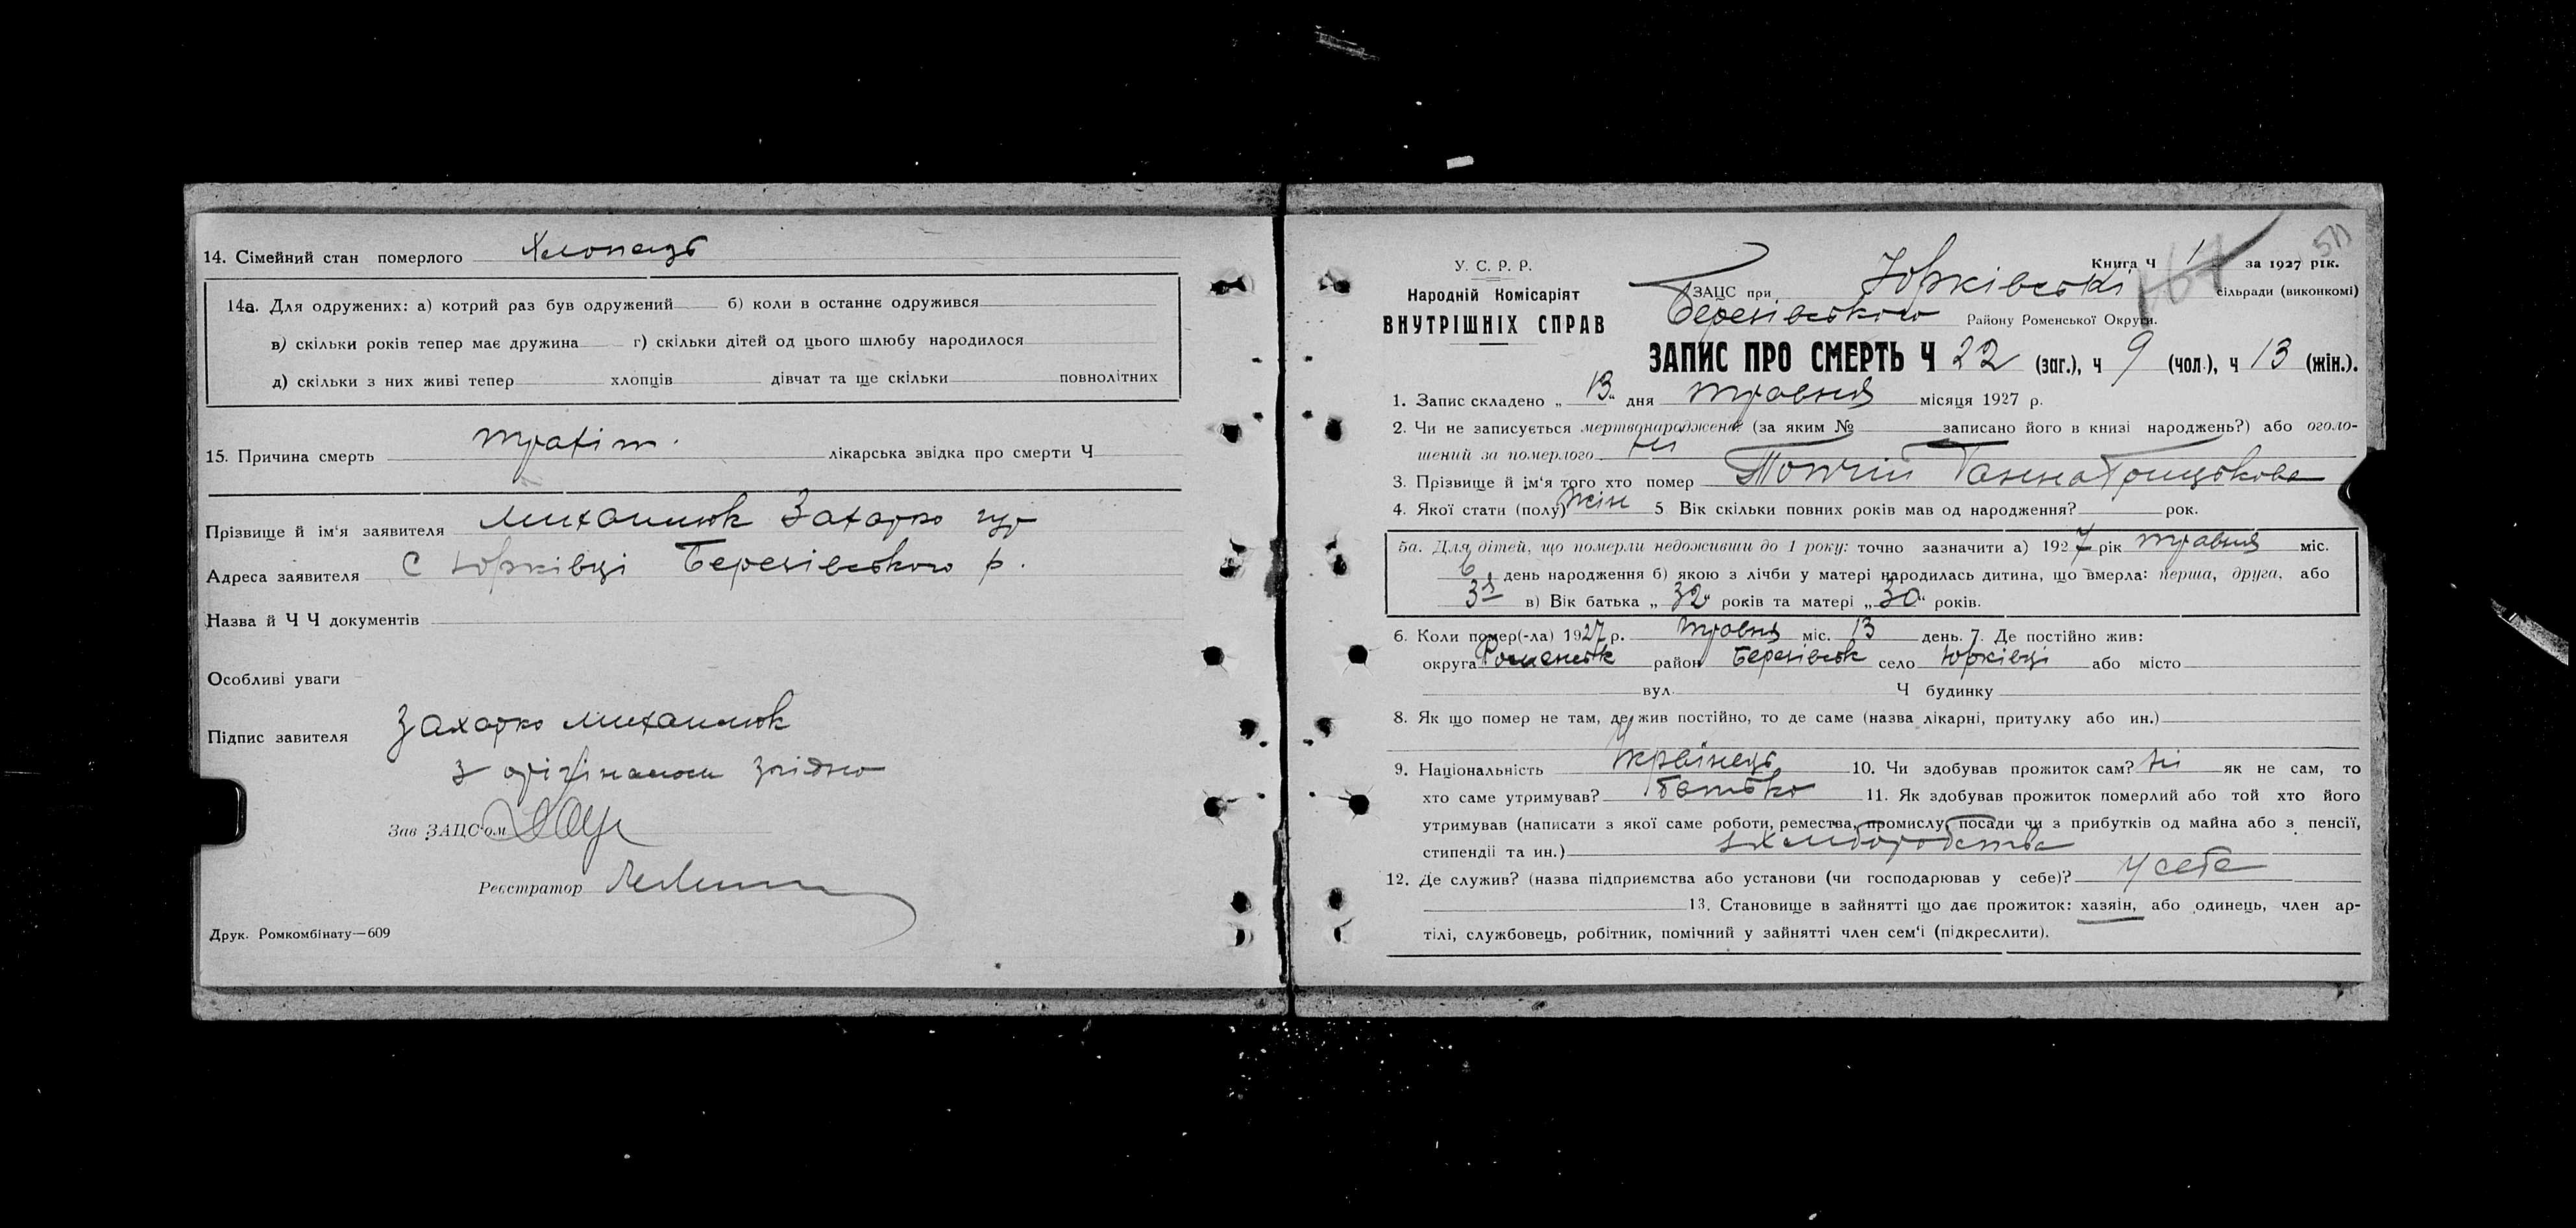 14. Сімейний стан померлого Хлопець
14а. Для одружених: а) котрий раз був одружений б) коли в останнє одружився
в) скільки років тепер має дружина г) скільки дітей од цього шлюбу народилося
д) скільки з них живі тепер хлопців дівчат та ще скільки повнолітних
15. Причина смерть лікарська звідка про смерти Ч
Прізвище й ім'я заявителя Михайлюк Захарко
Адреса заявителя С Юрківці Березівського р.
Назва й Ч Ч документів
Особливі уваги
Підпис завителя Захарко Михайлюк
З орігіналом згідно
Зав ЗАЦС'ом
Реєстратор
Друк. Ромкомбінату—609
У. С. Р. Р.
Народній Комісаріят
ВНУТРІШНІХ СПРАВ
50
Книга Ч 1 за 1927 рік.
ЗАЦС при Юрківські сільради (виконкомі)
Березівського Району Роменської Округи.
ЗАПИС ПРО СМЕРТЬ Ч 22 (заг.), ч 9 (чол.), ч 13 (жін.).
1. Запис складено „ 13 " дня травня місяця 1927 р.
2. Чи не записується мертвонароджене? (за яким № записано його в книзі народжень?) або оголо-
шений за померлого ні
3. Прізвище й ім'я того хто помер Ганна Грицькова
4. Якої стати (полу) жін 5 Вік скільки повних років мав од народження? рок.
5а. Для дітей, що померли недоживши до 1 року: точно зазначити а) 1927 рік травня міс.
6 день народження б) якою з лічби у матері народилась дитина, що вмерла: перша, друга, або
3я в) Вік батька „ 32 " років та матері „ 30 " років.
6. Коли помер(-ла) 1927 р. травня міс. 13 день. 7. Де постійно жив:
округа Роменськ район Березівськ село Юрківці або місто
вул. Ч будинку
8. Як що помер не там, де жив постійно, то де саме (назва лікарні, притулку або ин.)
9. Національність Українець 10. Чи здобував прожиток сам? ні як не сам, то
хто саме утримував? батько 11. Як здобував прожиток померлий або той хто його
утримував (написати з якої саме роботи, ремества, промислу, посади чи з прибутків од майна або з пенсії,
стипендії та ин.) з хліборобства
12. Де служив? (назва підприємства або установи (чи господарював у себе)? у себе
13. Становище в зайнятті що дає прожиток: хазяін, або одинець, член ар-
тілі, службовець, робітник, помічний у зайнятті член сем'ї (підкреслити).